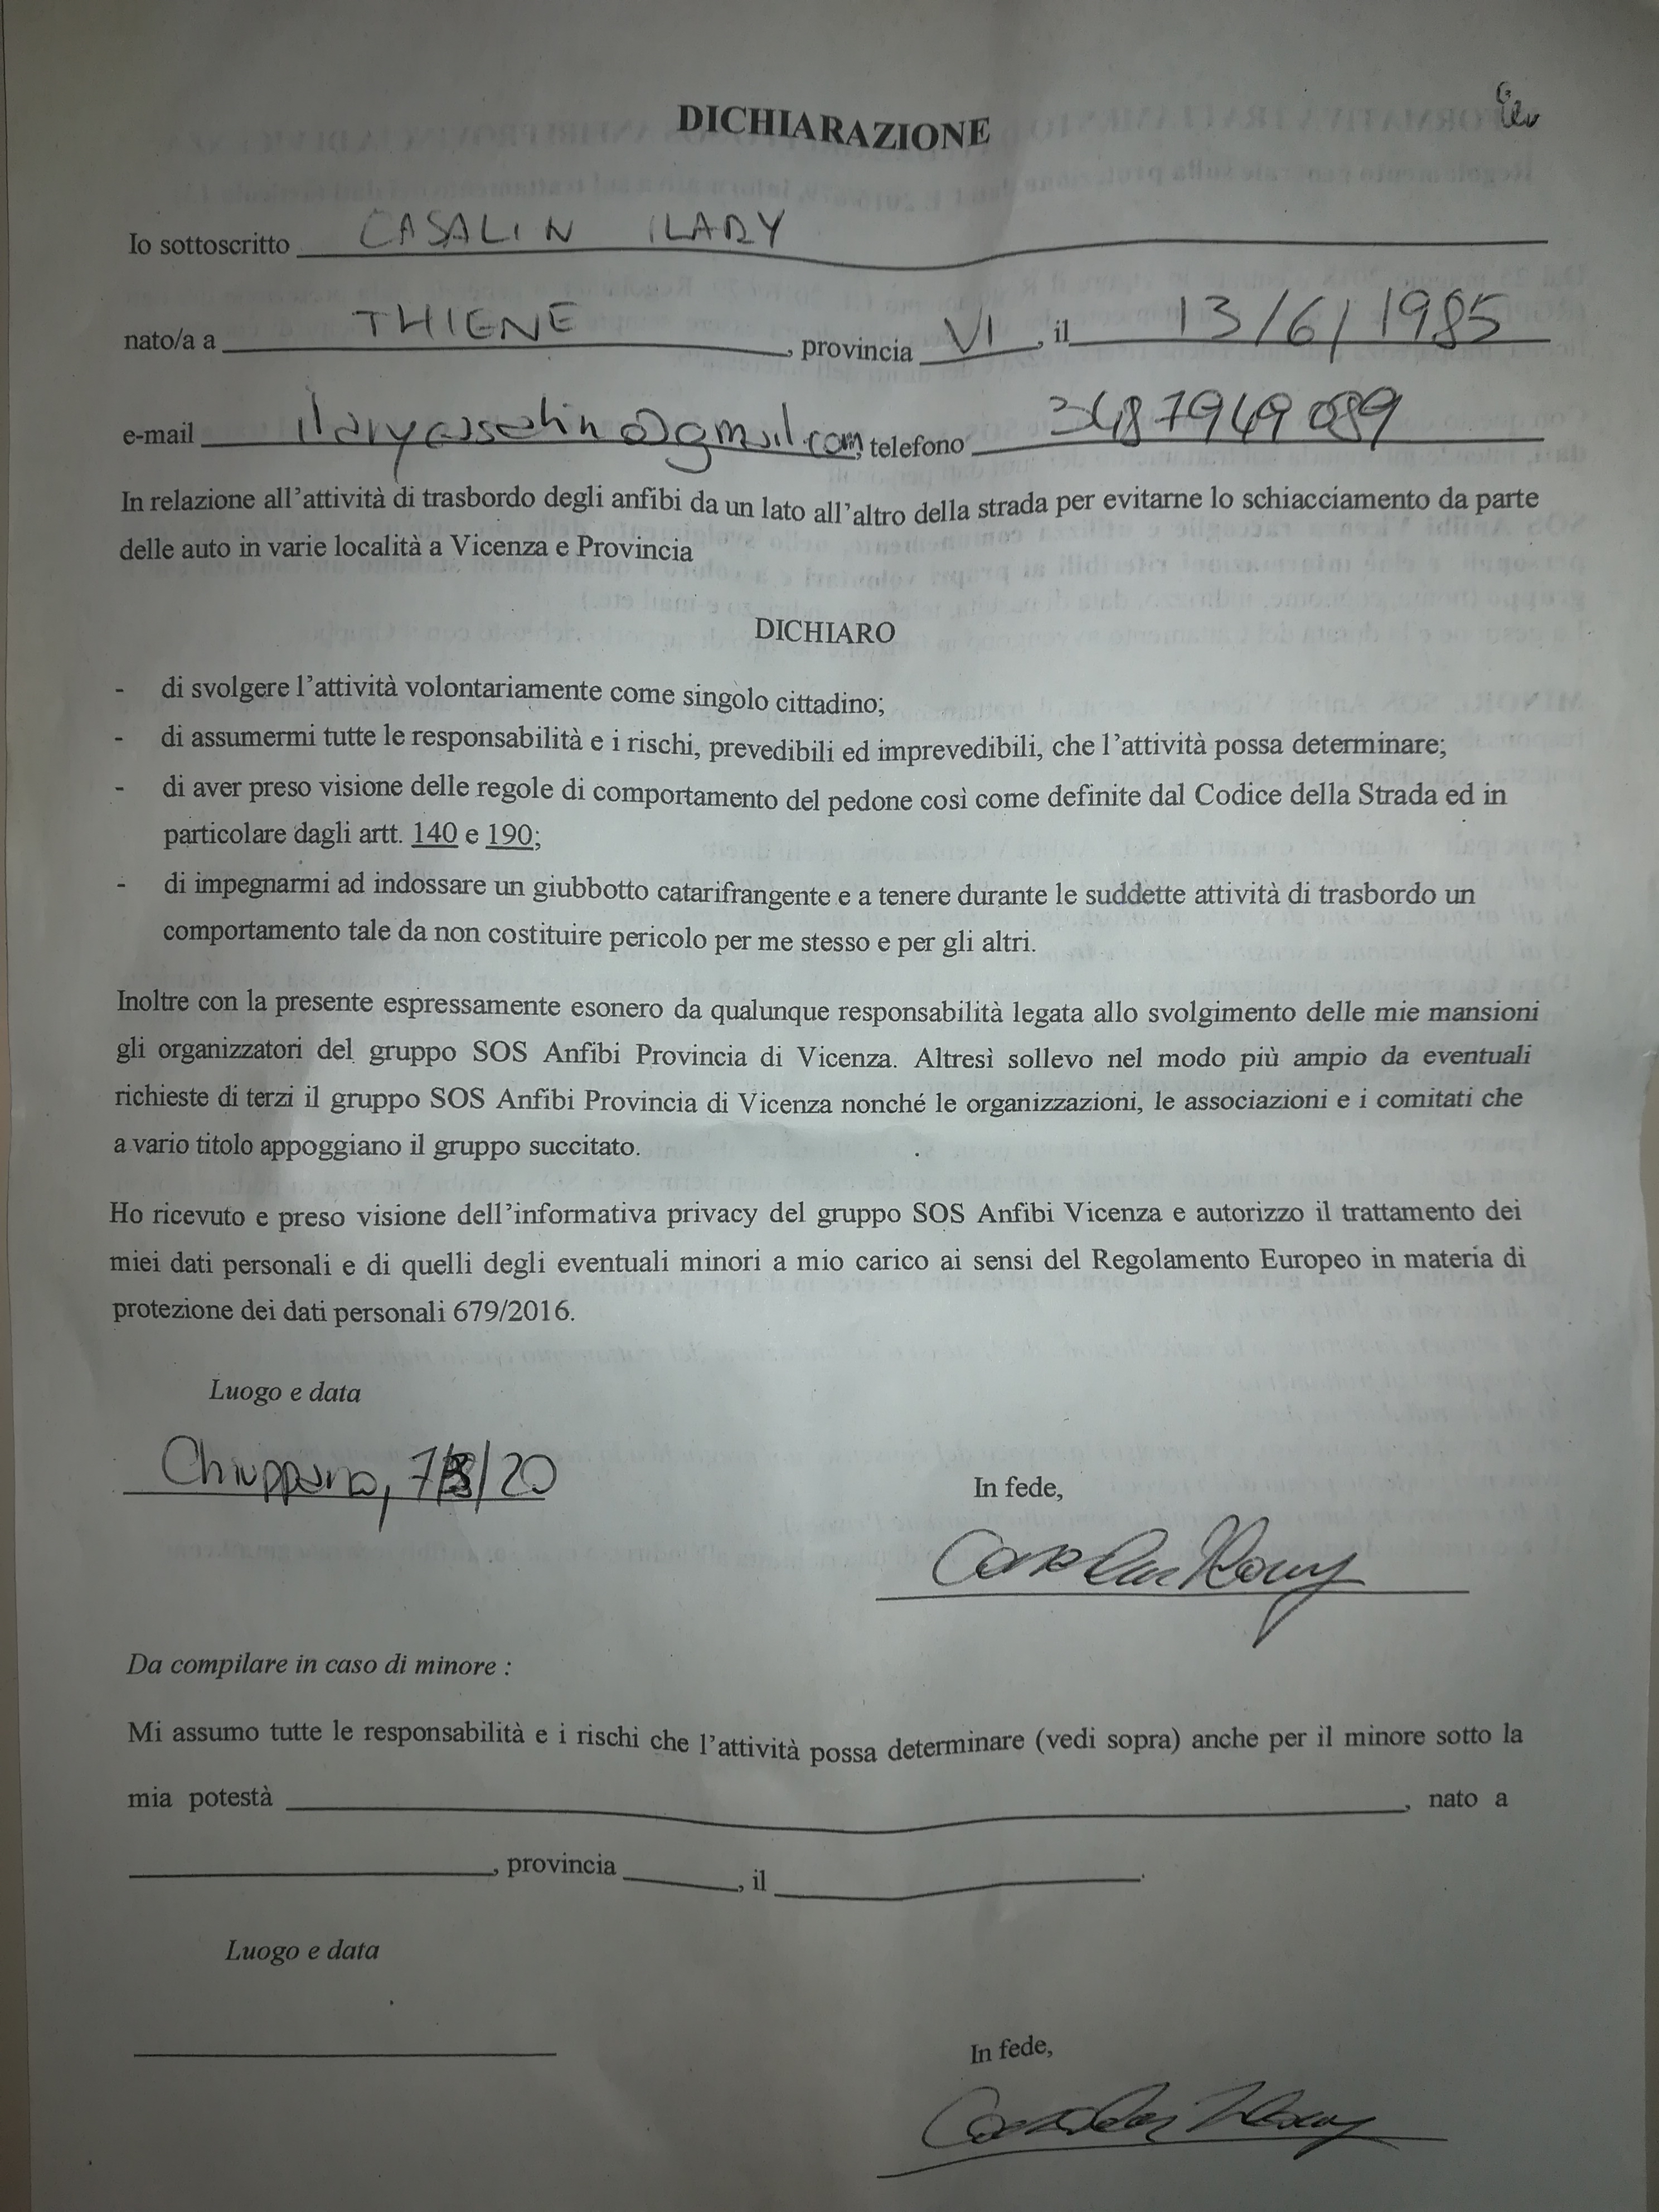 DICHIARAZIONE
Io sottoscritto CASALIN ILARY
nato/a a THIENE, provincia VI, il 13/6/1985
e-mail ilarycasalin@gmail.com, telefono 3487949089
In relazione all'attività di trasbordo degli anfibi da un lato all'altro della strada per evitarne lo schiacciamento da parte
delle auto in varie località a Vicenza e Provincia
DICHIARO
- di svolgere l'attività volontariamente come singolo cittadino;
- di assumermi tutte le responsabilità e i rischi, prevedibili ed imprevedibili, che l'attività possa determinare;
- di aver preso visione delle regole di comportamento del pedone così come definite dal Codice della Strada ed in
particolare dagli artt. 140 e 190;
- di impegnarmi ad indossare un giubbotto catarifrangente e a tenere durante le suddette attività di trasbordo un
comportamento tale da non costituire pericolo per me stesso e per gli altri.
Inoltre con la presente espressamente esonero da qualunque responsabilità legata allo svolgimento delle mie mansioni
gli organizzatori del gruppo SOS Anfibi Provincia di Vicenza. Altresì sollevo nel modo più ampio da eventuali
richieste di terzi il gruppo SOS Anfibi Provincia di Vicenza nonché le organizzazioni, le associazioni e i comitati che
a vario titolo appoggiano il gruppo succitato.
Ho ricevuto e preso visione dell'informativa privacy del gruppo SOS Anfibi Vicenza e autorizzo il trattamento dei
miei dati personali e di quelli degli eventuali minori a mio carico ai sensi del Regolamento Europeo in materia di
protezione dei dati personali 679/2016.
Luogo e data
Chiuppano, 7/3/20
In fede,
Casalin Ilary
Da compilare in caso di minore :
Mi assumo tutte le responsabilità e i rischi che l'attività possa determinare (vedi sopra) anche per il minore sotto la
mia potestà , nato a
, provincia , il .
Luogo e data
In fede,
Casalin Ilary